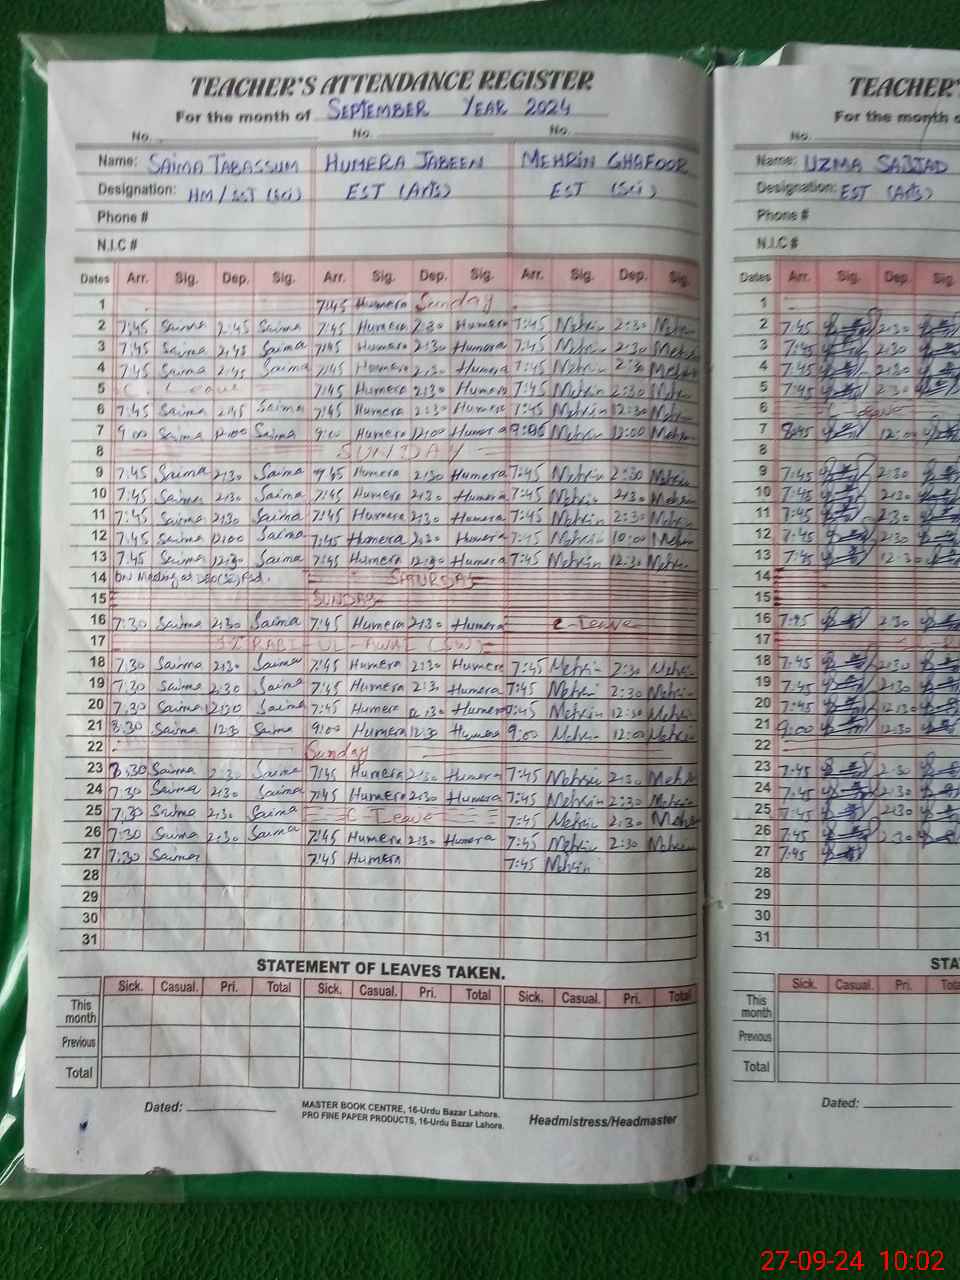 TEACHER'S ATTENDANCE REGISTER
For the month of SEPTEMBER YEAR 2024
No. No. No.
Name: SAIMA TABASSUM HUMERA JABEEN MEHRIN GHAFOOR
Designation: HM/SST (Sci) EST (Arts) EST (Sci)
Phone #
N.I.C #
Dates Arr. Sig. Dep. Sig. Arr. Sig. Dep. Sig. Arr. Sig. Dep. Sig.
1 7:45 Humera Sunday
2 7:45 Saima 2:45 Saima 7:45 Humera 2:30 Humera 7:45 Mehrin 2:30 Mehrin
3 7:45 Saima 2:45 Saima 7:45 Humera 2:30 Humera 7:45 Mehrin 2:30 Mehrin
4 7:45 Saima 2:45 Saima 7:45 Humera 2:30 Humera 7:45 Mehrin 2:30 Mehrin
5 C. Leave 7:45 Humera 2:30 Humera 7:45 Mehrin 2:30 Mehrin
6 7:45 Saima 2:45 Saima 7:45 Humera 2:30 Humera 7:45 Mehrin 12:30 Mehrin
7 9:00 Saima 12:00 Saima 9:00 Humera 12:00 Humera Mehrin 12:00 Mehrin
8 SUNDAY
9 7:45 Saima 2:30 Saima Humera 2:30 Humera 7:45 Mehrin 2:30 Mehrin
10 7:45 Saima 2:30 Saima 7:45 Humera 2:30 Humera 7:45 Mehrin 2:30 Mehrin
11 7:45 Saima 2:30 Saima 7:45 Humera 2:30 Humera 7:45 Mehrin 2:30 Mehrin
12 7:45 Saima 12:00 Saima 7:45 Humera 2:30 Humera 7:45 Mehrin 10:00 Mehrin
13 7:45 Saima 12:30 Saima 7:45 Humera 12:30 Humera 7:45 Mehrin 12:30 Mehrin
14 ON Meeting at SATURDAY
15 SUNDAY
16 7:30 Saima 2:30 Saima 7:45 Humera 2:30 Humera C-Leave
17 12 RABI-UL-AWAL (SW)
18 7:30 Saima 2:30 Saima 7:45 Humera 2:30 Humera 7:45 Mehrin 2:30 Mehrin
19 7:30 Saima 2:30 Saima 7:45 Humera 2:30 Humera 7:45 Mehrin 2:30 Mehrin
20 7:30 Saima 12:30 Saima 7:45 Humera 12:30 Humera 7:45 Mehrin 12:30 Mehrin
21 8:30 Saima 12:30 Saima 9:00 Humera 12:30 Humera 9:00 Mehrin 12:00 Mehrin
22 Sunday
23 Saima 2:30 Saima 7:45 Humera 2:30 Humera 7:45 Mehrin 2:30 Mehrin
24 7:30 Saima 2:30 Saima 7:45 Humera 2:30 Humera 7:45 Mehrin 2:30 Mehrin
25 7:30 Saima 2:30 Saima C-Leave 7:45 Mehrin 2:30 Mehrin
26 7:30 Saima 2:30 Saima 7:45 Humera 2:30 Humera 7:45 Mehrin 2:30 Mehrin
27 7:30 Saima 7:45 Humera 7:45 Mehrin
28
29
30
31
STATEMENT OF LEAVES TAKEN.
Sick. Casual. Pri. Total Sick. Casual. Pri. Total Sick. Casual. Pri. Total
This month
Previous
Total
Dated:
MASTER BOOK CENTRE, 16-Urdu Bazar Lahore.
PRO FINE PAPER PRODUCTS, 16-Urdu Bazar Lahore.
Headmistress/Headmaster
TEACHER'
For the month o
No.
Name: UZMA SAJJAD
Designation: EST (Arts)
Phone #
N.I.C #
Dates Arr. Sig. Dep. Sig
1
2 7:45 2:30
3 7:45 2:30
4 7:45 2:30
5 7:45 2:30
6 C-Leave
7 8:45 12:00
8
9 7:45 2:30
10 7:45 2:30
11 7:45 2:30
12 7:45 2:30
13 7:45 12:30
14
15
16 7:45 2:30
17
18 7:45 2:30
19 7:45 2:30
20 7:45 12:30
21 9:00 12:30
22
23 7:45 2:30
24 7:45 2:30
25 7:45 2:30
26 7:45 2:30
27 7:45
28
29
30
31
STA
Sick. Casual. Pri. Tota
This month
Previous
Total
Dated:
27-09-24 10:02